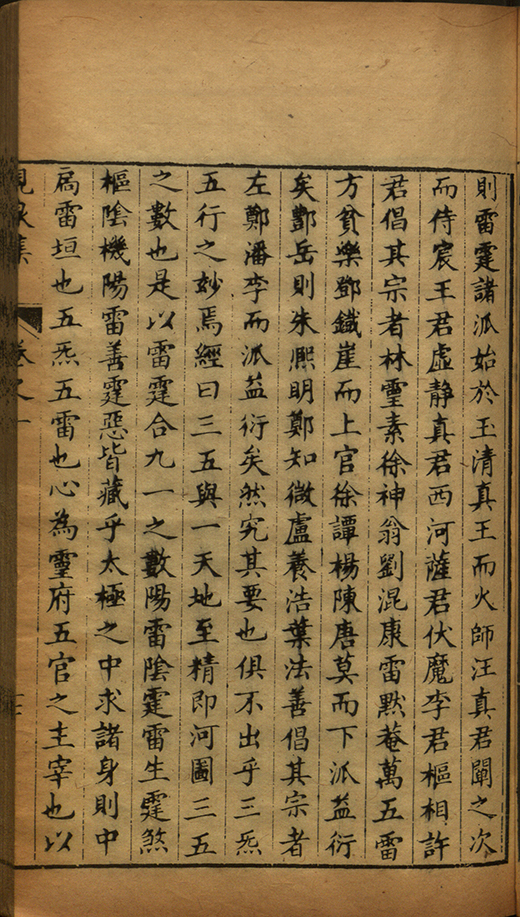 則雷霆諸派始於玉清真王而火師汪真君闡之次
而侍宸王君虛靜真君西河薩君伏魔李君樞相許
君倡其宗者林靈素徐神翁劉混康雷默菴萬五雷
方貧樂鄧鐵崖而上官徐譚楊陳唐莫而下派益衍
矣酆岳則朱熈明鄭知微盧養浩葉法善倡其宗者
左鄭潘李而派益衍矣然究其要也俱不出乎三炁
五行之妙焉經曰三五與一天地至精即河圖三五
之數也是以雷霆合九一之數陽雷陰霆雷生霆煞
樞陰機陽雷善霆惡皆藏乎太極之中求諸身則中
為雷垣也五炁五雷也心為靈府五官之主宰也以
峴泉集
卷之一